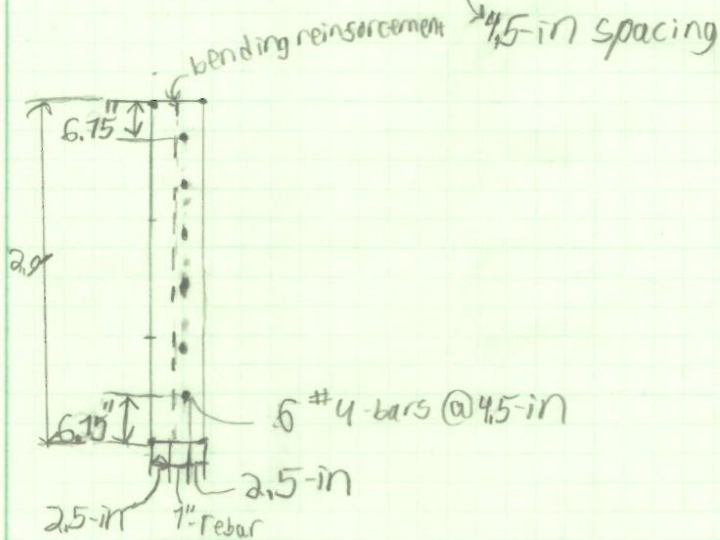 bending reinforcement
4,5-in spacing
6.75"
6.75"
6 #4-bars @4,5-in
2,5-in
2,5-in
1"-rebar